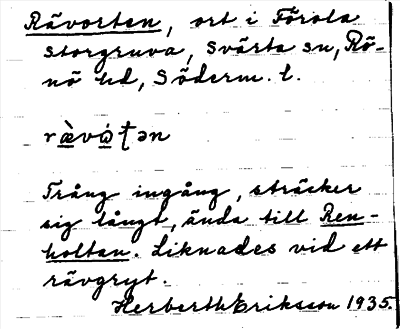 Rävorten, ort i Förola
storgruva, Svärta sn, Rö-
nö hd, Söderm. l.
Trång ingång, sträcker
sig långt, ända till Ren-
holtan. Liknades vid ett
rävgryt.
Herberth Eriksson 1935.